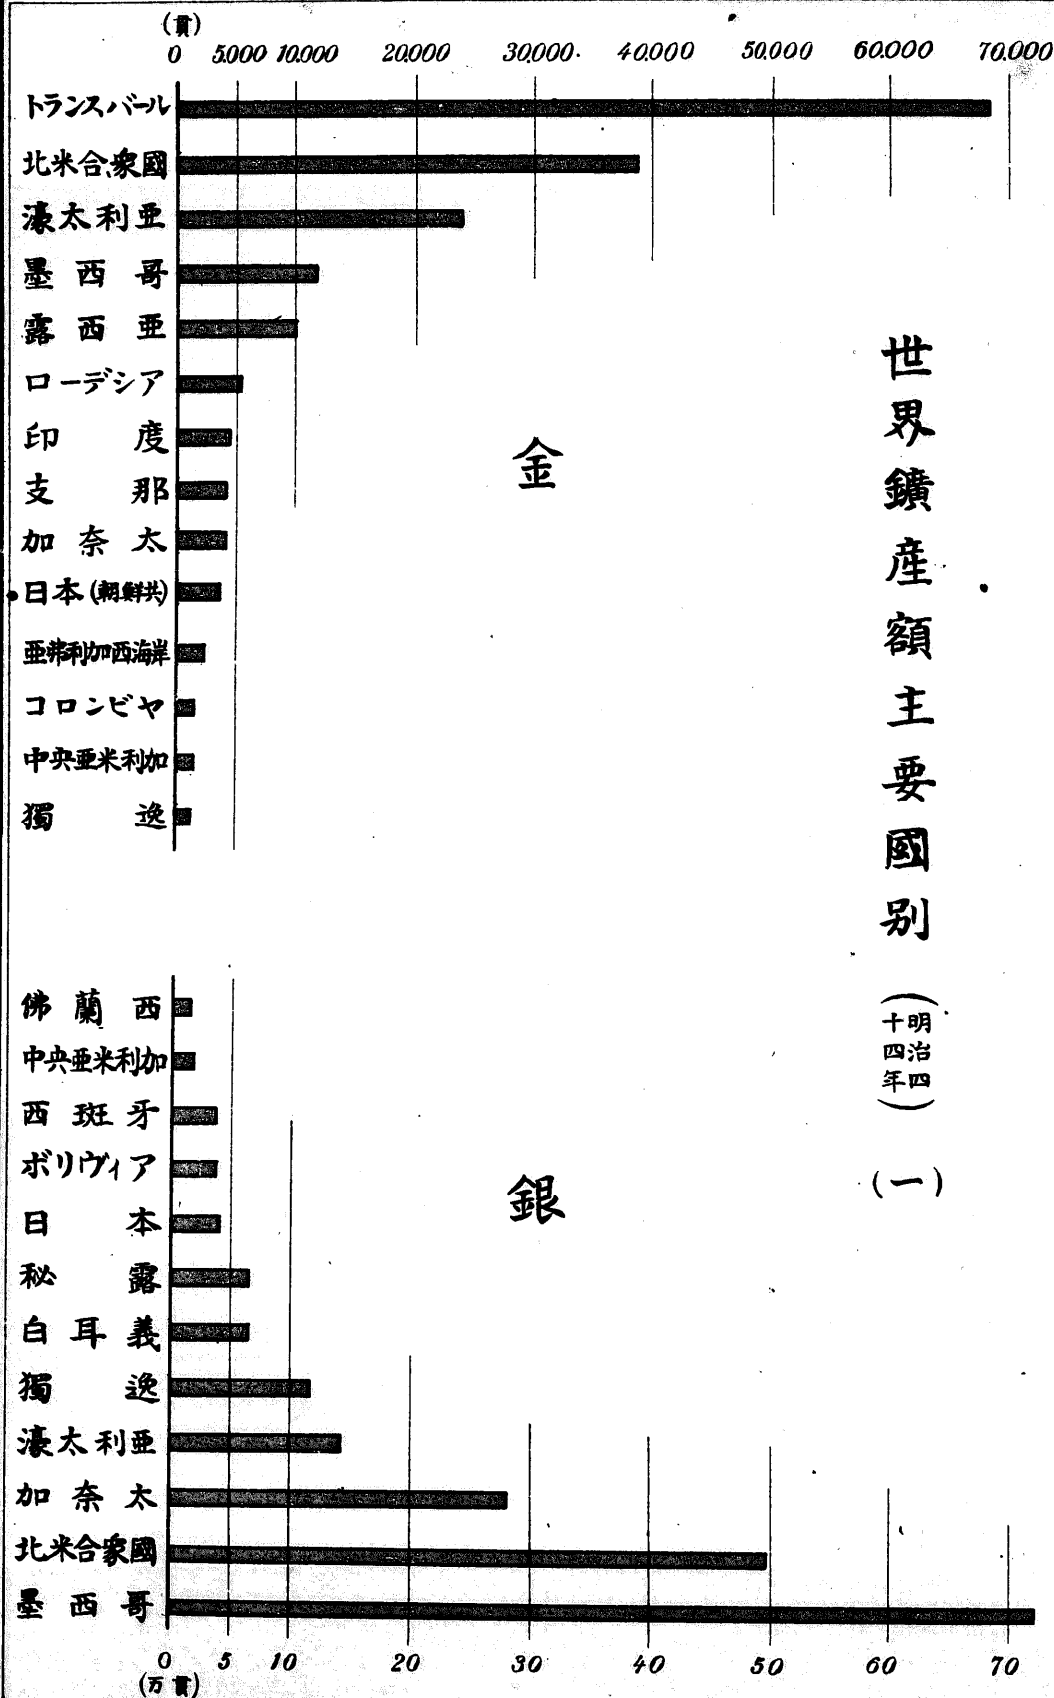 世界鑛産額主要國別
(明治四十四年)
(一)
(貫)
0 5.000 10.000 20.000 30.000 40.000 50.000 60.000 70.000
金
トランスバール
北米合衆國
濠太利亜
墨西哥
露西亜
ローデシア
印度
支那
加奈太
日本(朝鮮共)
亜弗利加西海岸
コロンビヤ
中央亜米利加
獨逸
銀
佛蘭西
中央亜米利加
西班牙
ボリヴィア
日本
秘露
白耳義
獨逸
濠太利亜
加奈太
北米合衆國
墨西哥
0 5 10 20 30 40 50 60 70
(万貫)